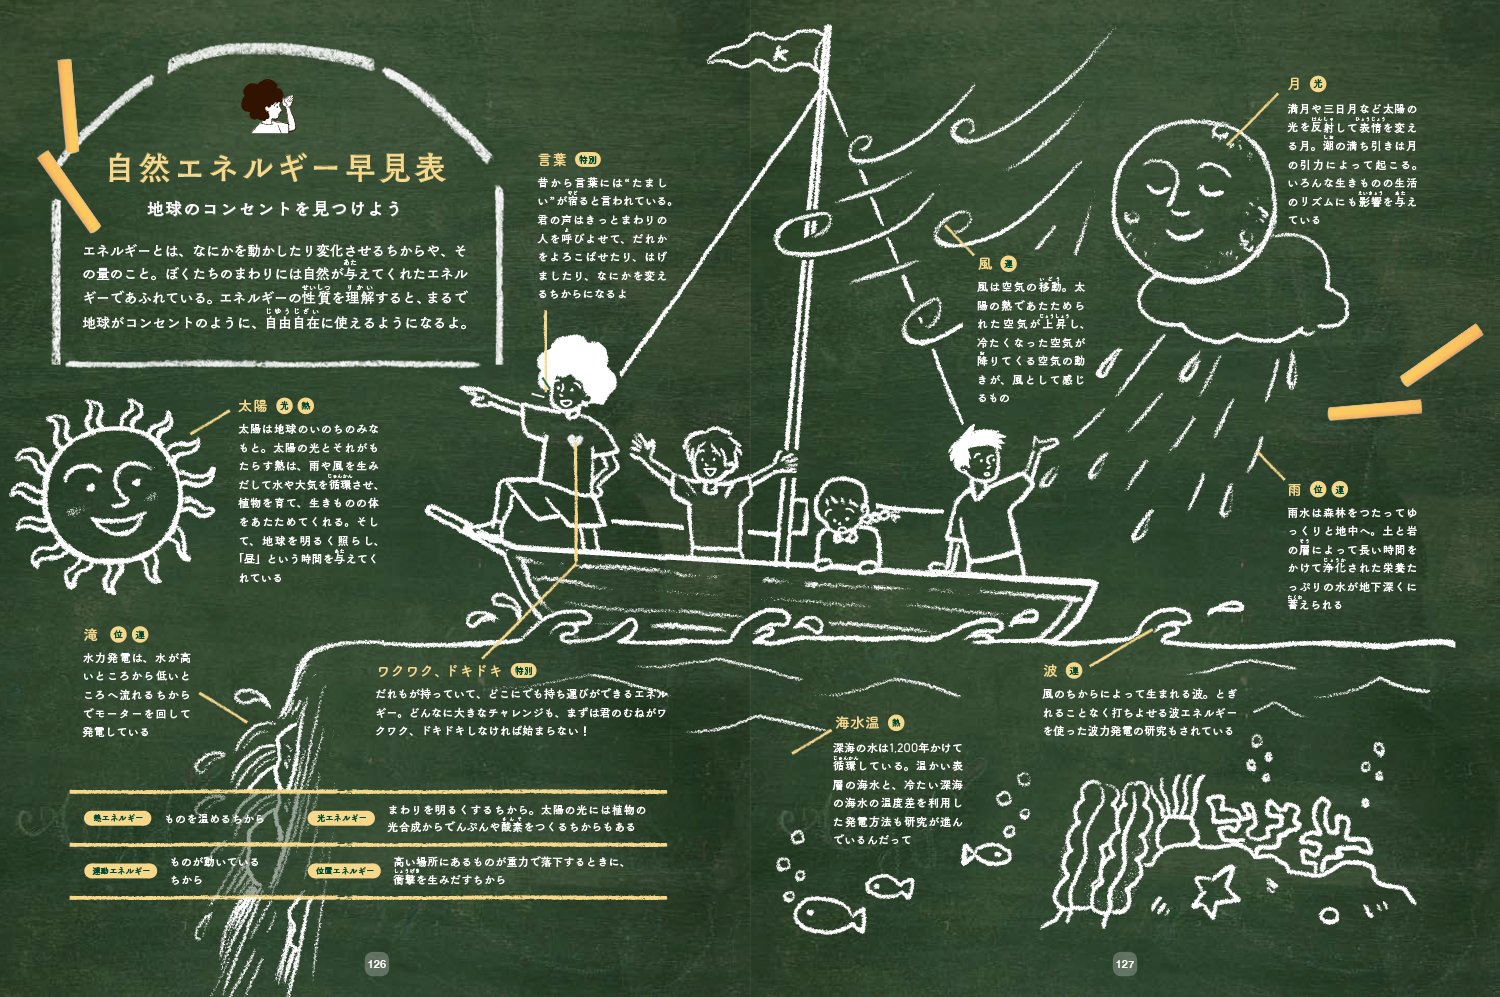 自然エネルギー早見表
地球のコンセントを見つけよう
エネルギーとは、なにかを動かしたり変化させるちからや、そ
の量のこと。ぼくたちのまわりには自然が与えてくれたエネル
ギーであふれている。エネルギーの性質を理解すると、まるで
地球がコンセントのように、自由自在に使えるようになるよ。
言葉 特別
昔から言葉には“たまし
い”が宿ると言われている。
君の声はきっとまわりの
人を呼びよせて、だれか
をよろこばせたり、はげ
ましたり、なにかを変え
るちからになるよ
太陽 光 熱
太陽は地球のいのちのみな
もと。太陽の光とそれがも
たらす熱は、雨や風を生み
だして水や大気を循環させ、
植物を育て、生きものの体
をあたためてくれる。そし
て、地球を明るく照らし、
「昼」という時間を与えてく
れている
滝 位 運
水力発電は、水が高
いところから低いと
ころへ流れるちから
でモーターを回して
発電している
ワクワク、ドキドキ 特別
だれもが持っていて、どこにでも持ち運びができるエネル
ギー。どんなに大きなチャレンジも、まずは君のむねがワ
クワク、ドキドキしなければ始まらない！
熱エネルギー ものを温めるちから
光エネルギー まわりを明るくするちから。太陽の光には植物の
光合成からでんぷんや酸素をつくるちからもある
運動エネルギー ものが動いている
ちから
位置エネルギー 高い場所にあるものが重力で落下するときに、
衝撃を生みだすちから
126
k
月 光
満月や三日月など太陽の
光を反射して表情を変え
る月。潮の満ち引きは月
の引力によって起こる。
いろんな生きものの生活
のリズムにも影響を与え
ている
風 運
風は空気の移動。太
陽の熱であたためら
れた空気が上昇し、
冷たくなった空気が
降りてくる空気の動
きが、風として感じ
るもの
雨 位 運
雨水は森林をつたってゆ
っくりと地中へ。土と岩
の層によって長い時間を
かけて浄化された栄養た
っぷりの水が地下深くに
蓄えられる
波 運
風のちからによって生まれる波。とぎ
れることなく打ちよせる波エネルギー
を使った波力発電の研究もされている
海水温 熱
深海の水は1,200年かけて
循環している。温かい表
層の海水と、冷たい深海
の海水の温度差を利用し
た発電方法も研究が進ん
でいるんだって
127